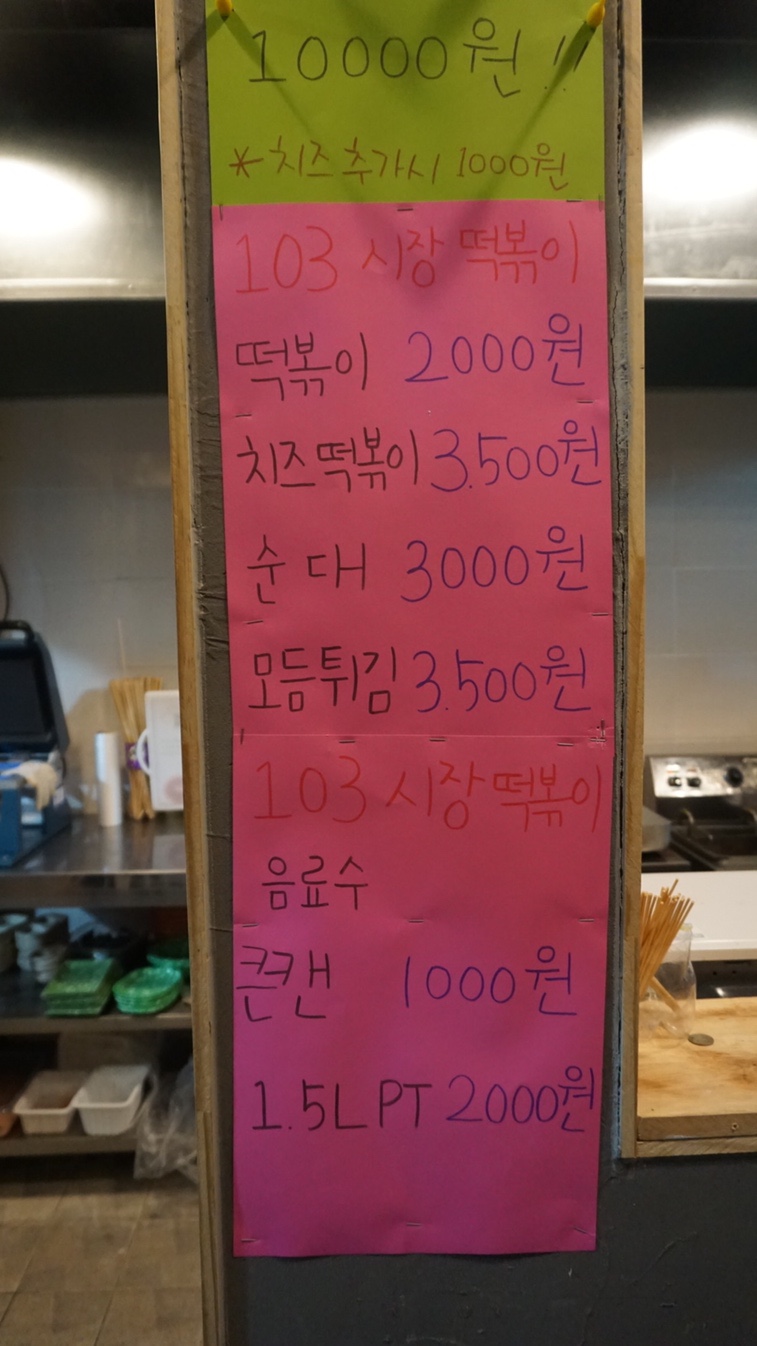 10000원!!
*치즈 추가시 1000원
103 시장 떡볶이
떡볶이 2000원
치즈떡볶이 3.500원
순대 3000원
모듬튀김 3.500원
103 시장 떡볶이
음료수
큰캔 1000원
1.5L PT 2000원